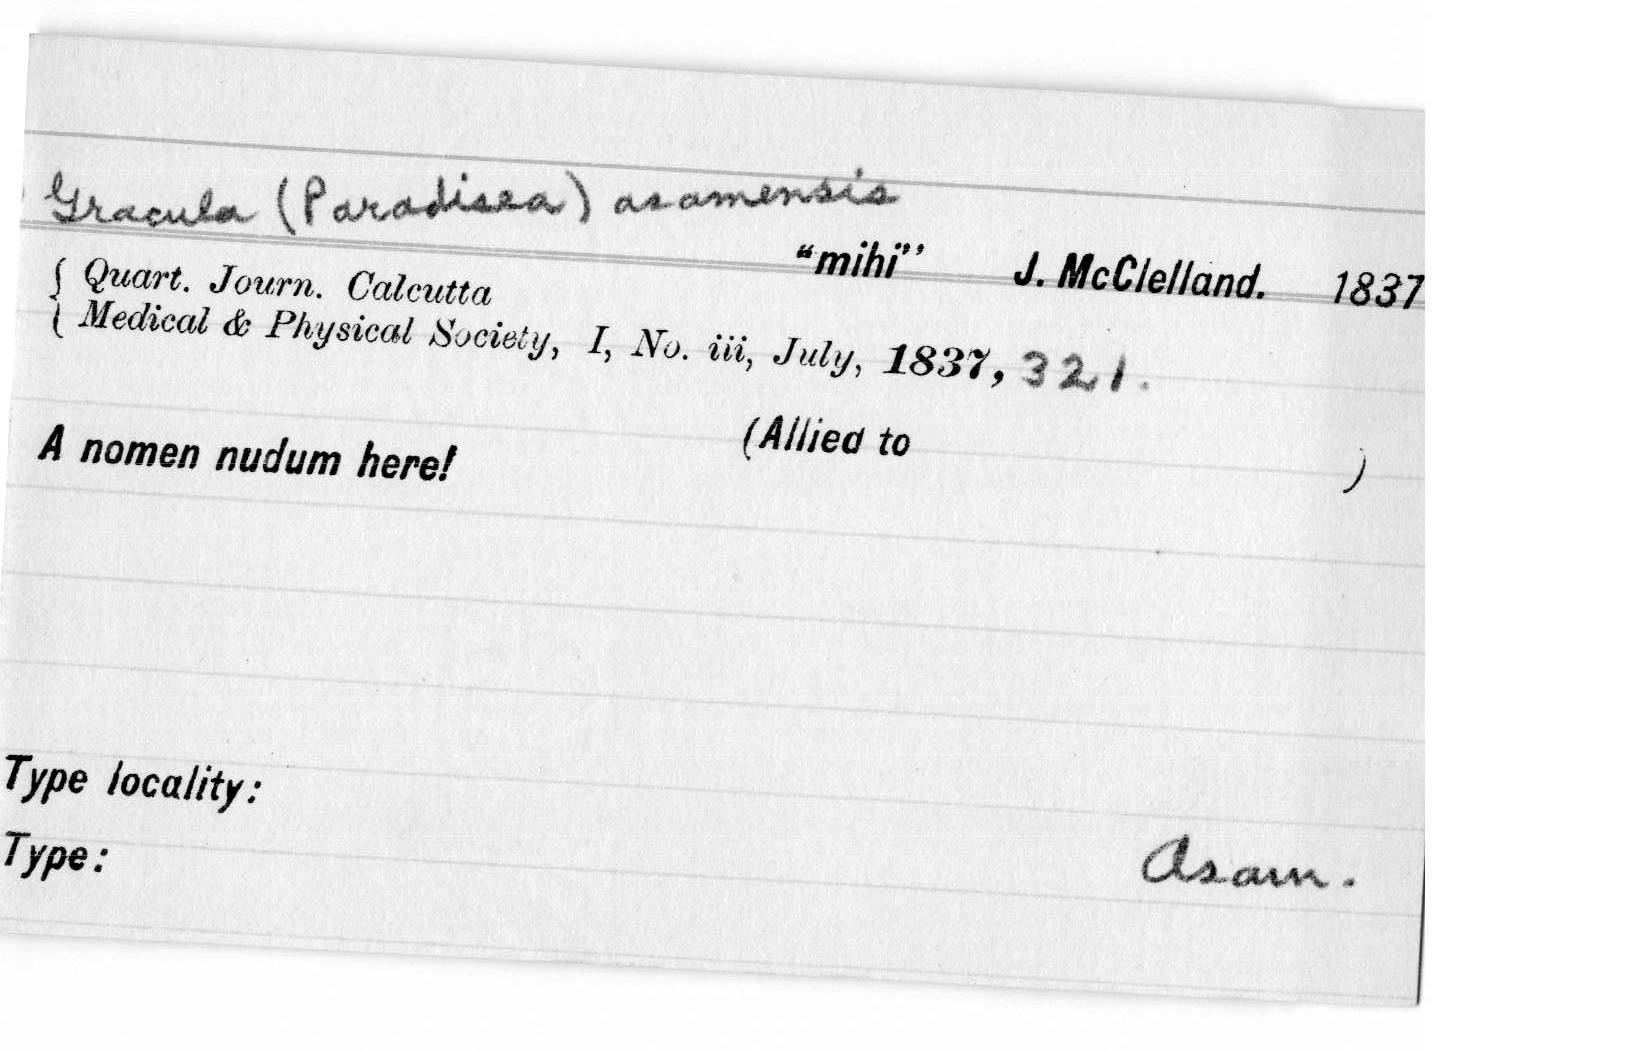 Gracula (Paradisea) asamensis
"mihi" J. McClelland. 1837
{ Quart. Journ. Calcutta
{ Medical & Physical Society, I, No. iii, July, 1837, 321.
A nomen nudum here! (Allied to )
Type locality:
Type: Asam.